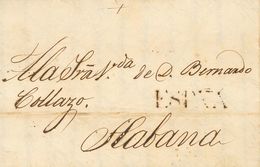 A la Sra. V.da de D. Bernardo
Collazo.
ESPÑA
Habana